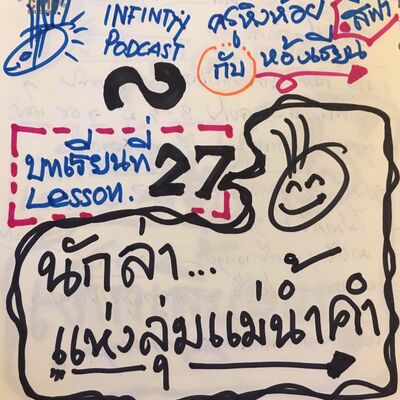 INFINITY
PODCAST
ครูหิ่งห้อย
กับ ห้องเรียน
สีฟ้า
บทเรียนที่
Lesson. 27
นักล่า...
แห่งลุ่มแม่น้ำคำ